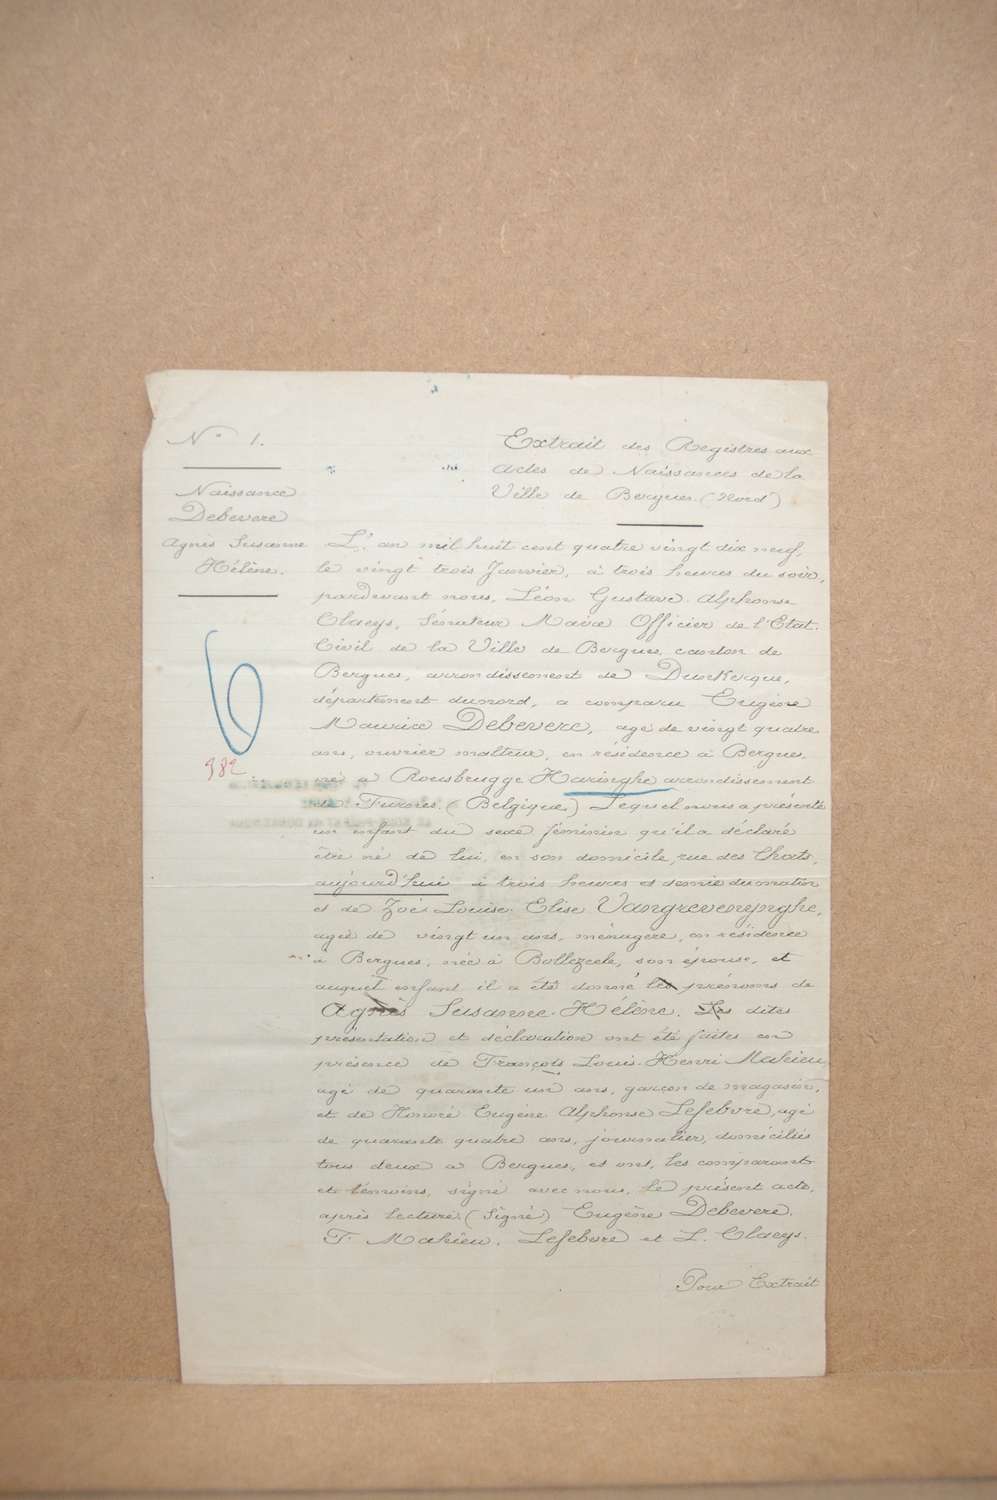 N° 1.
Naissance
Debevere
Agnès Susanne
Hélène.
6
982
Extrait des Registres aux
Actes de Naissances de la
Ville de Bergues (Nord)
L'an mil huit cent quatre vingt dix neuf,
le vingt trois Janvier, à trois heures du soir,
pardevant nous, Léon Gustave Alphonse
Claeys, Sénateur Maire Officier de l'Etat-
Civil de la Ville de Bergues, canton de
Bergues, arrondissement de Dunkerque,
département du nord, a comparu Eugène
Maurice Debevere, agé de vingt quatre
ans, ouvrier malteur, en résidence à Bergues,
né à Rousbrugge-Haringhe arrondissement
de Furnes. (Belgique) Lequel nous a présenté
un enfant du sexe féminin qu'il a déclaré
être né de lui, en son domicile, rue des Chats,
aujourd'hui à trois heures et demie du matin
et de Zoé Louise Elise Vangrevenynghe,
agée de vingt un ans, ménagère, en résidence
à Bergues, née à Bollezeele, son épouse, et
auquel enfant il a été donné les prénoms de
Agnès Susanne Hélène. Les dites
présentation et déclaration ont été faites en
présence de François Louis Henri Mahieu,
agé de quarante un ans, garçon de magasin,
et de Honoré Eugène Alphonse Lefebvre, agé
de quarante quatre ans, journalier, domiciliés
tous deux à Bergues, et ont, les comparant
et témoins, signé avec nous, le présent acte,
après lecture. (Signé) Eugène Debevere.
F. Mahieu. Lefebvre et L. Claeys.
Pour Extrait